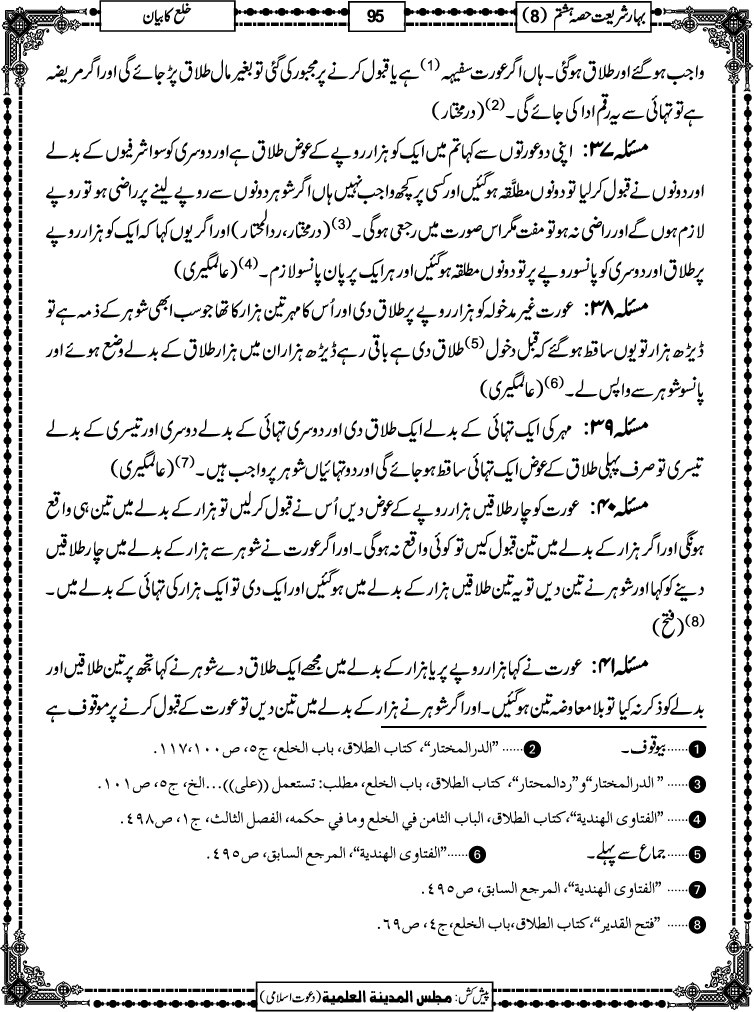 بہارشریعت حصہ ہشتم (8)
95
خلع کا بیان
واجب ہوگئے اور طلاق ہوگئی۔ ہاں اگر عورت سفیہہ (1) ہے یا قبول کرنے پر مجبور کی گئی تو بغیر مال طلاق پڑ جائے گی اور اگر مریضہ
ہے تو تہائی سے یہ رقم ادا کی جائے گی۔ (2) (درمختار)
مسئلہ ۳۷: اپنی دو عورتوں سے کہا تم میں ایک کو ہزار روپے کے عوض طلاق ہے اور دوسری کو سو اشرفیوں کے بدلے
اور دونوں نے قبول کرلیا تو دونوں مطلَّقہ ہوگئیں اور کسی پر کچھ واجب نہیں ہاں اگر شوہر دونوں سے روپے لینے پر راضی ہو تو روپے
لازم ہوں گے اور راضی نہ ہو تو مفت مگر اس صورت میں رجعی ہوگی۔ (3) (درمختار، ردالمحتار) اور اگر یوں کہا کہ ایک کو ہزار روپے
پر طلاق اور دوسری کو پانسو روپے پر تو دونوں مطلقہ ہوگئیں اور ہر ایک پر پان پانسو لازم۔ (4) (عالمگیری)
مسئلہ ۳۸: عورت غیر مدخولہ کو ہزار روپے پر طلاق دی اور اُس کا مہر تین ہزار کا تھا جو سب ابھی شوہر کے ذمہ ہے تو
ڈیڑھ ہزار تو یوں ساقط ہوگئے کہ قبل دخول (5) طلاق دی ہے باقی رہے ڈیڑھ ہزار ان میں ہزار طلاق کے بدلے وضع ہوئے اور
پانسو شوہر سے واپس لے۔ (6) (عالمگیری)
مسئلہ ۳۹: مہر کی ایک تہائی کے بدلے ایک طلاق دی اور دوسری تہائی کے بدلے دوسری اور تیسری کے بدلے
تیسری تو صرف پہلی طلاق کے عوض ایک تہائی ساقط ہو جائے گی اور دو تہائیاں شوہر پر واجب ہیں۔ (7) (عالمگیری)
مسئلہ ۴۰: عورت کو چار طلاقیں ہزار روپے کے عوض دیں اُس نے قبول کرلیں تو ہزار کے بدلے میں تین ہی واقع
ہونگی اور اگر ہزار کے بدلے میں تین قبول کیں تو کوئی واقع نہ ہوگی۔ اور اگر عورت نے شوہر سے ہزار کے بدلے میں چار طلاقیں
دینے کو کہا اور شوہر نے تین دیں تو یہ تین طلاقیں ہزار کے بدلے میں ہوگئیں اور ایک دی تو ایک ہزار کی تہائی کے بدلے میں۔
(8) (فتح)
مسئلہ ۴۱: عورت نے کہا ہزار روپے پر یا ہزار کے بدلے میں مجھے ایک طلاق دے شوہر نے کہا تجھ پر تین طلاقیں اور
بدلے کو ذکر نہ کیا تو بلا معاوضہ تین ہوگئیں۔ اور اگر شوہر نے ہزار کے بدلے میں تین دیں تو عورت کے قبول کرنے پر موقوف ہے
1 ...... بیوقوف۔ 2 ...... "الدرالمختار"، کتاب الطلاق، باب الخلع، ج٥، ص١٠٠،١١٧.
3 ...... "الدرالمختار" و"ردالمحتار"، کتاب الطلاق، باب الخلع، مطلب: تستعمل ((علی))...الخ، ج٥، ص١٠١.
4 ...... "الفتاوی الهندیة"، کتاب الطلاق، الباب الثامن في الخلع وما في حکمه، الفصل الثالث، ج١، ص٤٩٨.
5 ...... جماع سے پہلے۔ 6 ......"الفتاوی الهندیة"، المرجع السابق، ص٤٩٥.
7 ...... "الفتاوی الهندیة"، المرجع السابق، ص٤٩٥.
8 ...... "فتح القدیر"، کتاب الطلاق، باب الخلع، ج٤، ص٦٩.
پیش کش: مجلس المدینة العلمیة (دعوت اسلامی)